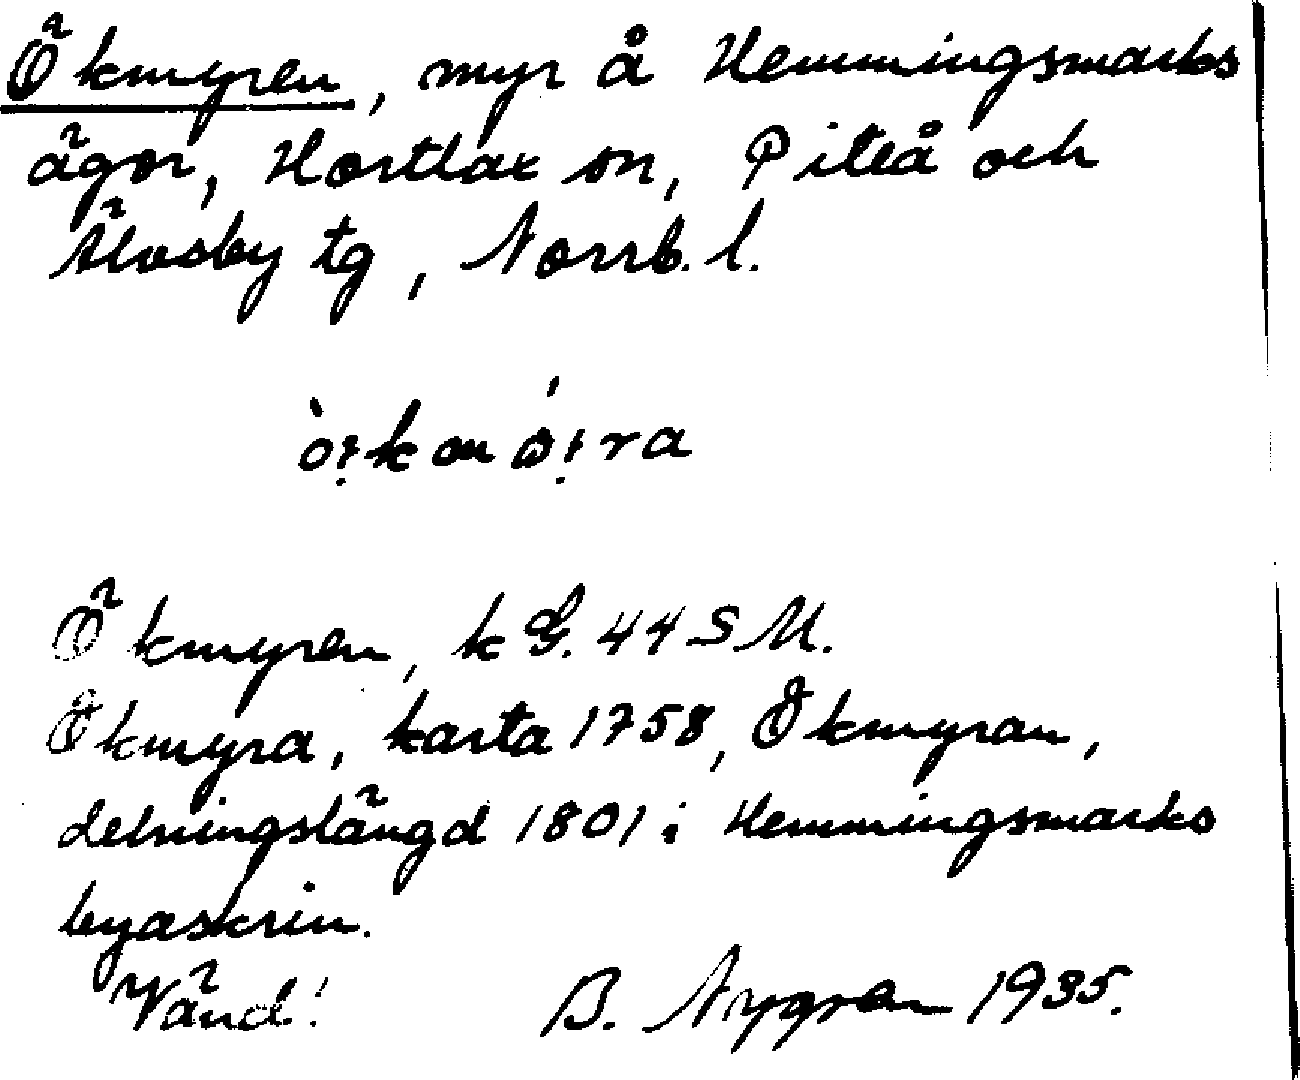 Ökmyren, myr å Hemmingsmarks
ägor, Hortlax sn, Piteå och
Älvsby tg, Norrb. l.
Ökmyren, k G. 44 S M.
Ökmyra, karta 1758, Ökmyran,
delningslängd 1801 i Hemmingsmarks
byaskrin.
Vänd! B. Nygren 1935.